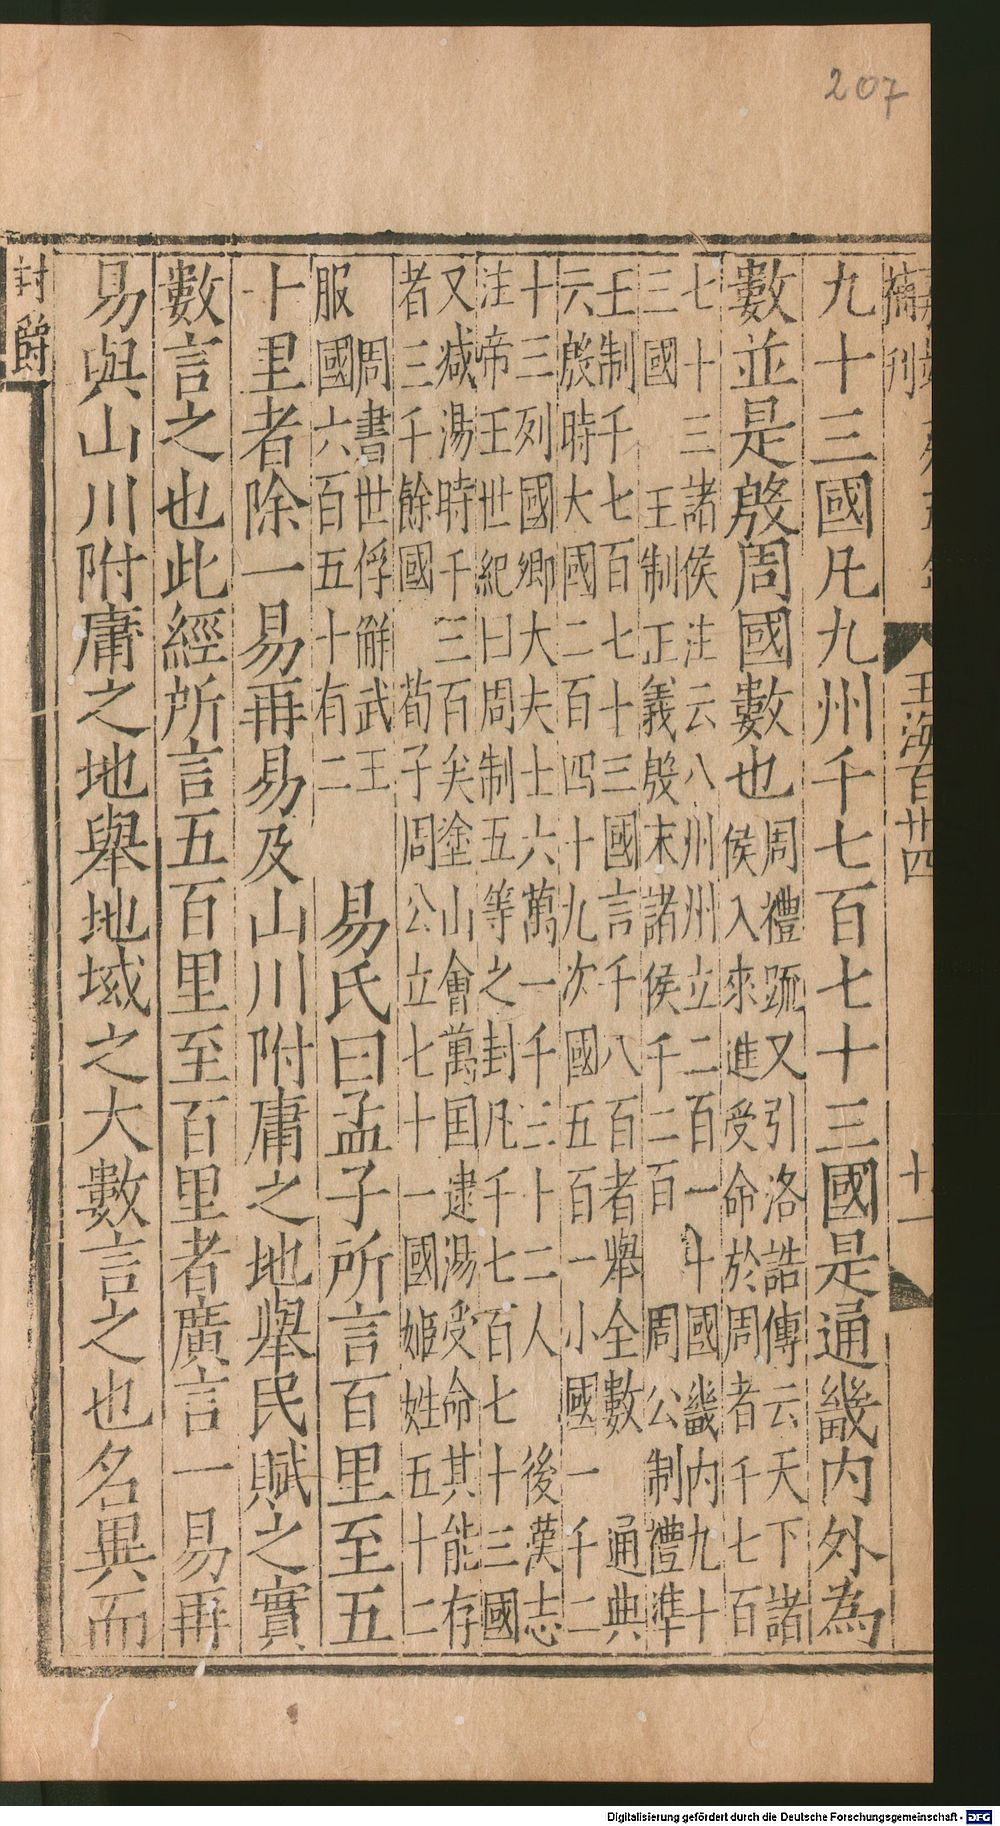 207
玉海百廿四
十一
九十三國凡九州千七百七十三國是通畿内外為
數並是殷周國數也
周禮䟽又引洛誥傳云天下諸
侯入來進受命於周者千七百
七十三諸侯注云八州州立二百一十國畿内九十
三國 王制正義殷末諸侯千二百 周公制禮準
王制千七百七十三國言千八百者舉全數 通典
六殷時大國二百四十九次國五百一小國一千二
十三列國卿大夫士六萬一千三十二人 後漢志
注帝王世紀曰周制五等之封凡千七百七十三國
又减湯時千三百矣塗山會萬国逮湯受命其能存
者三千餘國 荀子周公立七十一國姬姓五十二
周書世俘解武王
服國六百五十有二
易氏曰孟子所言百里至五
十里者除一易再易及山川附庸之地舉民賦之實
數言之也此經所言五百里至百里者廣言一易再
易與山川附庸之地舉地域之大數言之也名異而
封爵
Digitalisierung gefördert durch die Deutsche Forschungsgemeinschaft - DFG